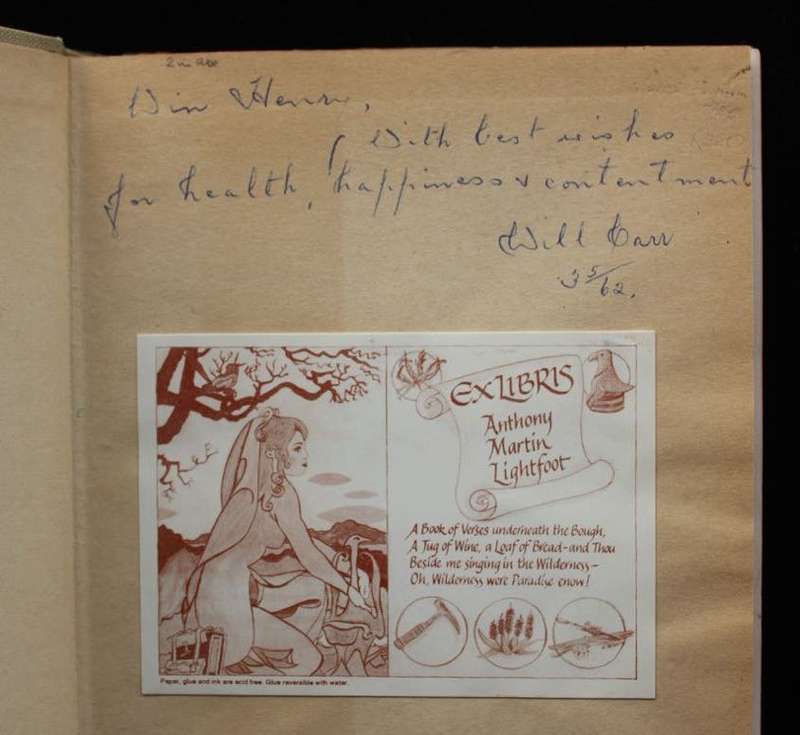 Win Henry,
With best wishes
for health, happiness & contentment
Will Carr
3 5/62.
EX LIBRIS
Anthony
Martin
Lightfoot
A Book of Verses underneath the Bough,
A Jug of Wine, a Loaf of Bread–and Thou
Beside me singing in the Wilderness–
Oh, Wilderness were Paradise enow!
Paper, glue and ink are acid free. Glue reversible with water.